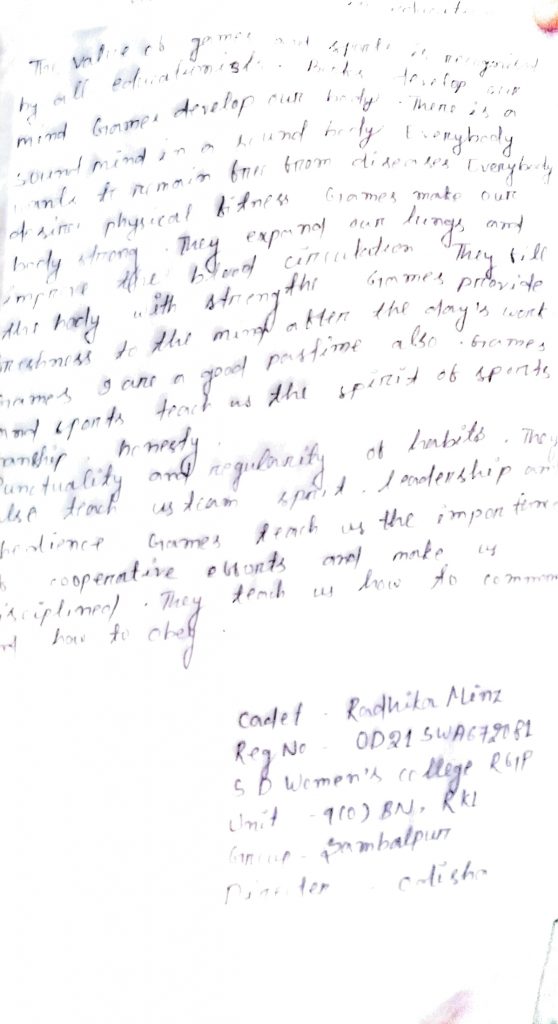 education
The value of games and sports is recognised
by all educationists. Books develop our
mind Games develop our body. There is a
sound mind in a sound body Everybody
wants to remain free from diseases Everybody
desire physical fitness Games make our
body strong. They expand our lungs and
improve the blood circulation They fill
the body with strengths Games provide
freshness to the mind after the day's work
Games are a good pastime also. Games
and sports teach us the spirit of sports
manship honesty.
Punctuality and regularity of habits. They
also teach us team spirit. leadership an
obedience Games teach us the importan
of cooperative efforts and make us
disciplined. They teach us how to comman
and how to obey.
Cadet - Radhika Minz
Reg No - OD21SWA672081
S D Women's college RGP
Unit - 9(O) BN, RKL
Group - Sambalpur
odisha